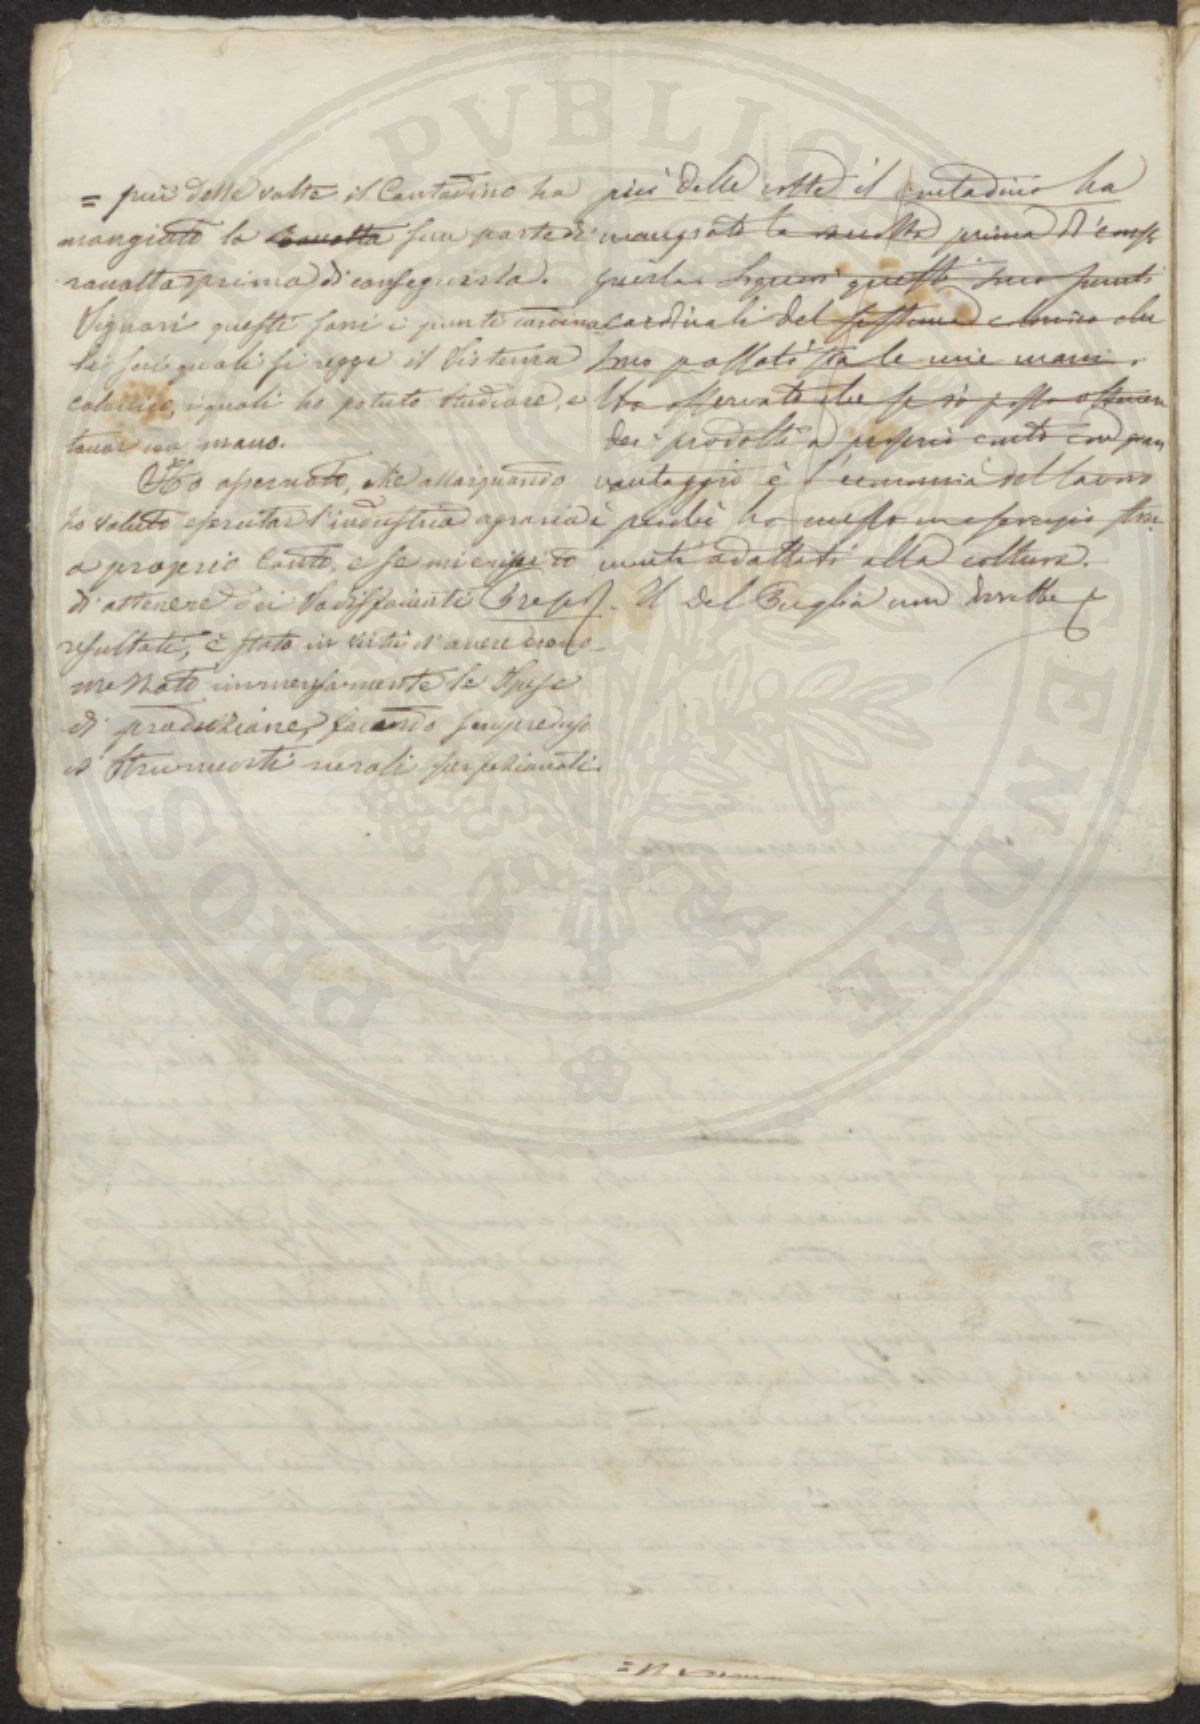 = più delle volte il Contadino ha
mangiato la raccolta sua parte di
raccolta prima di conseguirla.
Signori questi sono i punti cardina
li sui quali si regge il Sistema
colonico, i quali ho potuto studiare, e
toccar con mano.
Ho osservato, che allorquando
ho voluto esercitar l'industria agraria
a proprio Conto, e se mi è riuscito
di ottenere dei Sodisfacenti
resultati, è stato in virtù d'avere econo-
mizzato immensamente le Spese
di produzione, facendo sempre uso
di Strumenti rurali perfezionati.
più delle volte il contadino ha
mangiato la raccolta prima di conse
guirla. Signori questi sono punti
cardinali del sistema colonico che
sono passati fra le mie mani.
Ho osservato che se si possono ottenere
dei prodotti a proprio conto con gran
vantaggio è l'economia del lavoro
e perchè ho messo in esercizio stru
menti adattati alla coltura.
Il Del Puglia
PVBLICAE
PROSPERITATI AVGENDAE